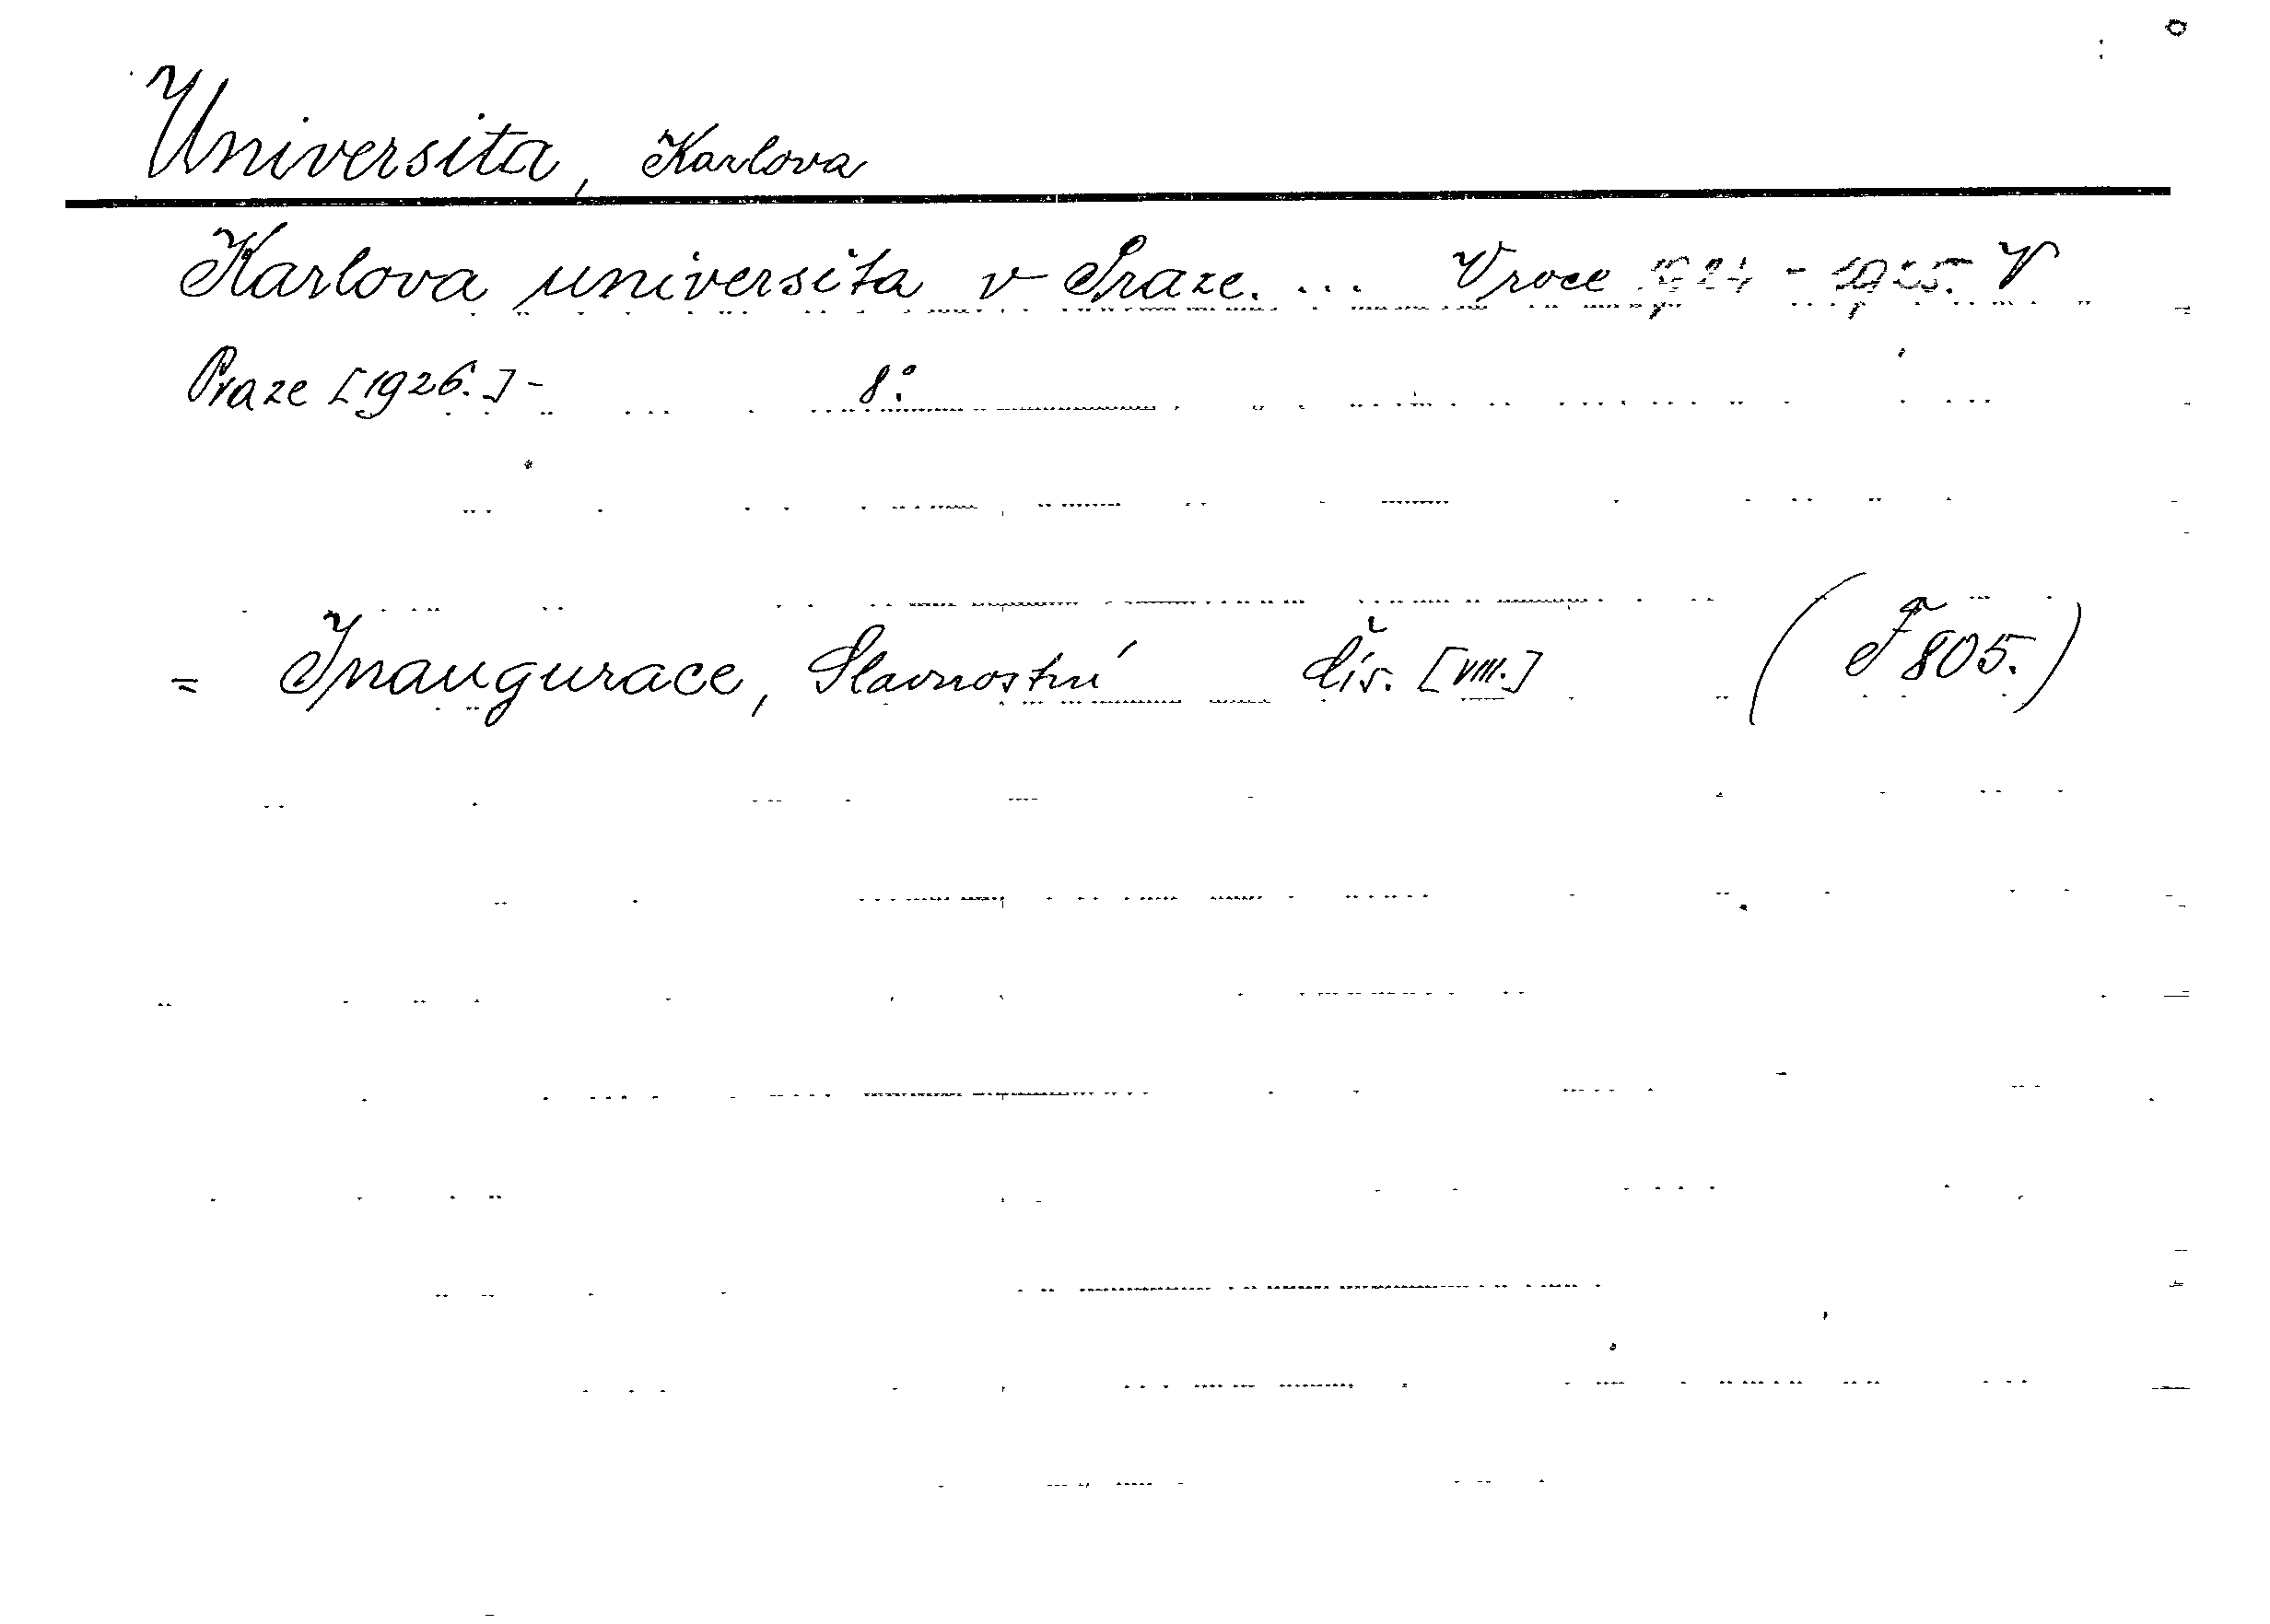 Universita, Karlova
Karlova universita v Praze. ... V roce 1924 - 1925. V
Praze [1926.] - 8°.
= Inaugurace, Slavnostní čís. [VIII.] (F 805.)